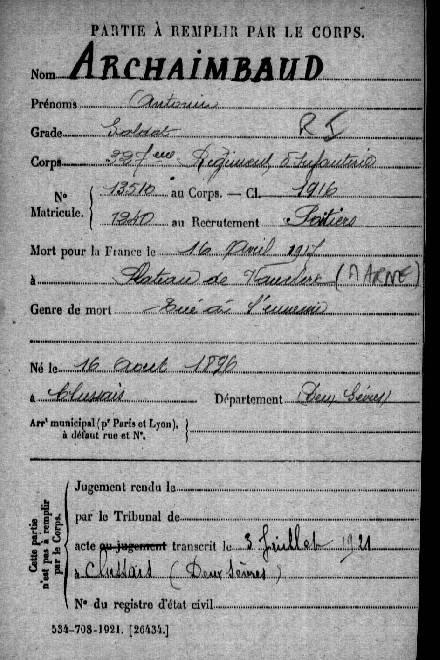 PARTIE À REMPLIR PAR LE CORPS.
Nom ARCHAIMBAUD
Prénoms Antonin
Grade Soldat R I
Corps 327ème Régiment d'Infanterie
N° Matricule. { 13510 au Corps. — Cl. 1916
1240 au Recrutement Poitiers
Mort pour la France le 16 Avril 1917
à Plateau de (MARNE)
Genre de mort Tué à l'ennemi
Né le 16 août 1896
à Clussais Département Deux Sèvres
Arrt municipal (pr Paris et Lyon), à défaut rue et N°.
Cette partie n'est pas à remplir par le Corps.
Jugement rendu le
par le Tribunal de
acte ou jugement transcrit le 3 Juillet 1921
à Clussais (Deux Sèvres)
N° du registre d'état civil
534-708-1921. [26434.]